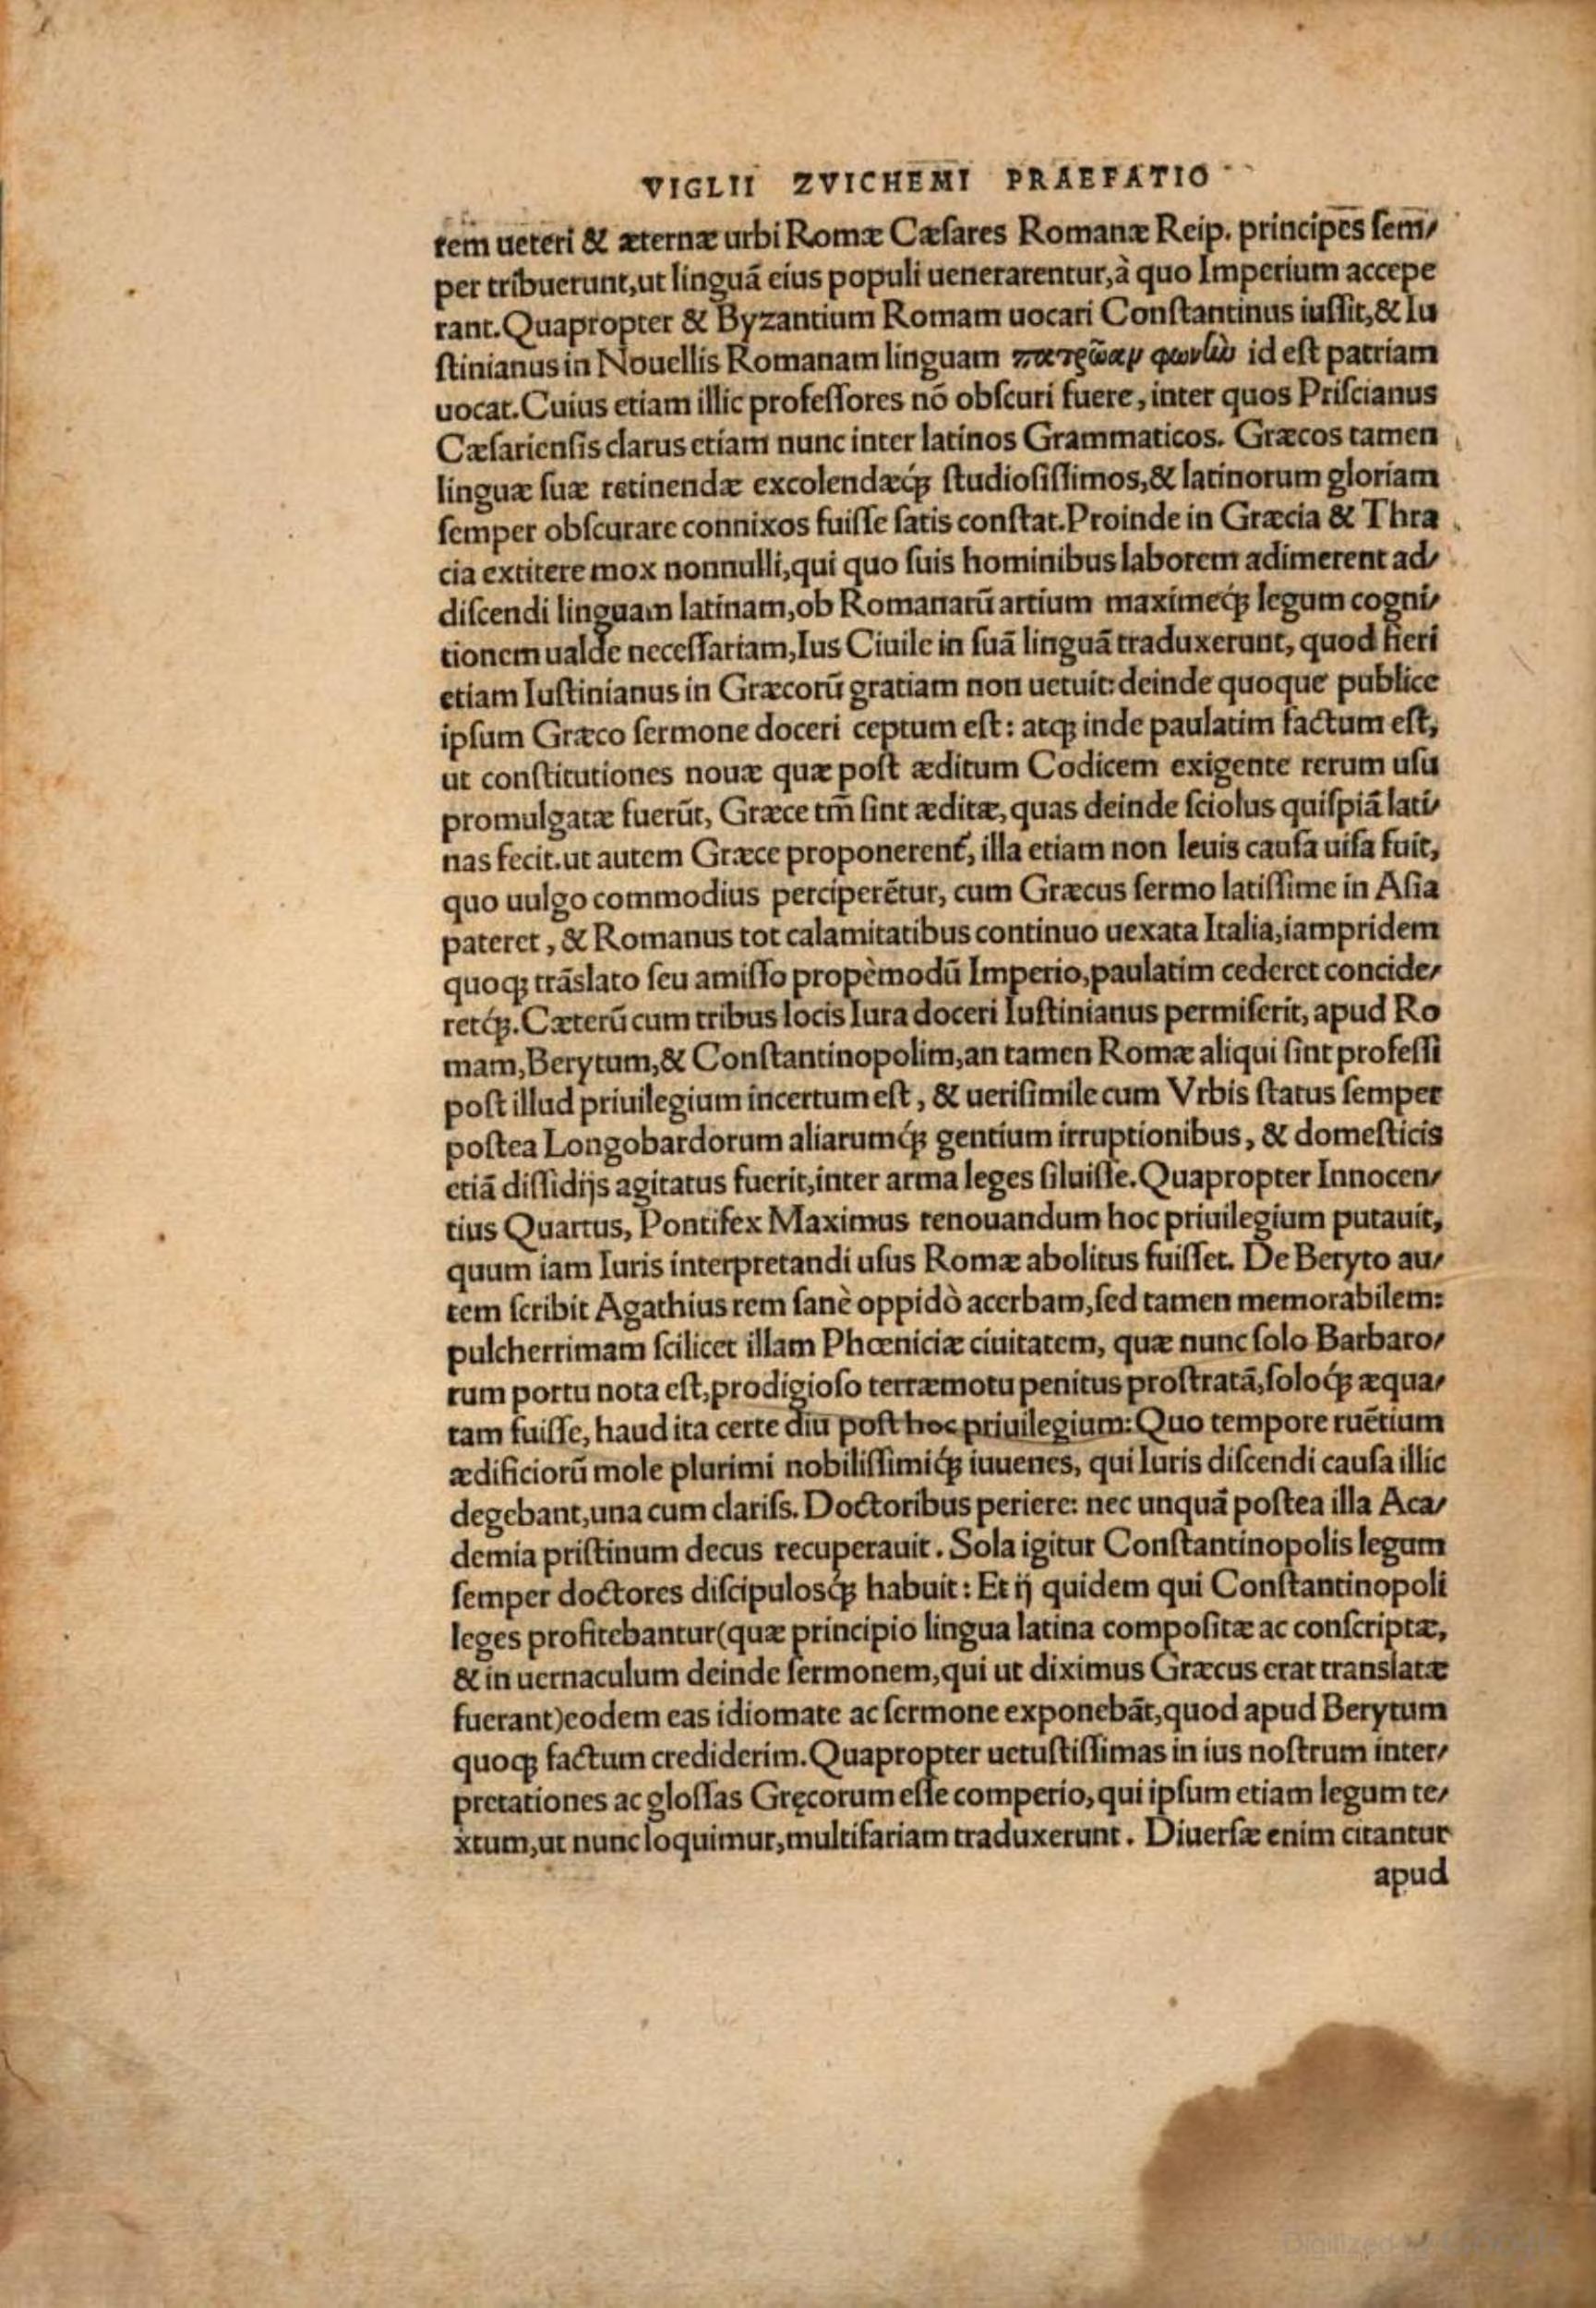 VIGLII ZVICHEMI PRAEFATIO
tem ueteri & æternæ urbi Romæ Cæſares Romanæ Reip. principes ſem⸗
per tribuerunt,ut linguã eius populi uenerarentur,à quo Imperium accepe
rant.Quapropter & Byzantium Romam uocari Conſtantinus iuſſit,& Iu
ſtinianus in Nouellis Romanam linguam πατρῶαν φωνὴν id eſt patriam
uocat.Cuius etiam illic profeſſores nõ obſcuri fuere, inter quos Priſcianus
Cæſarienſis clarus etiam nunc inter latinos Grammaticos. Græcos tamen
linguæ ſuæ retinendæ excolendæq́ꝫ ſtudioſiſſimos,& latinorum gloriam
ſemper obſcurare connixos fuiſſe ſatis conſtat.Proinde in Græcia & Thra
cia extitere mox nonnulli,qui quo ſuis hominibus laborem adimerent ad⸗
diſcendi linguam latinam,ob Romanarũ artium maximeq́ꝫ legum cogni⸗
tionem ualde neceſſariam,Ius Ciuile in ſuã linguã traduxerunt, quod fieri
etiam Iuſtinianus in Græcorũ gratiam non uetuit: deinde quoque publice
ipſum Græco ſermone doceri ceptum eſt: atqꝫ inde paulatim factum eſt,
ut conſtitutiones nouæ quæ poſt æditum Codicem exigente rerum uſu
promulgatæ fuerũt, Græce tm̃ ſint æditæ, quas deinde ſciolus quiſpiã lati⸗
nas fecit.ut autem Græce proponerent᷑, illa etiam non leuis cauſa uiſa fuit,
quo uulgo commodius perciperẽtur, cum Græcus ſermo latiſſime in Aſia
pateret, & Romanus tot calamitatibus continuo uexata Italia,iampridem
quoqꝫ trãslato ſeu amiſſo propèmodũ Imperio,paulatim cederet concide⸗
retq́ꝫ.Cæterũ cum tribus locis Iura doceri Iuſtinianus permiſerit, apud Ro
mam,Berytum,& Conſtantinopolim,an tamen Romæ aliqui ſint profeſſi
poſt illud priuilegium incertum eſt, & ueriſimile cum Vrbis ſtatus ſemper
poſtea Longobardorum aliarumq́ꝫ gentium irruptionibus, & domeſticis
etiã diſſidijs agitatus fuerit,inter arma leges ſiluiſſe.Quapropter Innocen⸗
tius Quartus, Pontifex Maximus renouandum hoc priuilegium putauit,
quum iam Iuris interpretandi uſus Romæ abolitus fuiſſet. De Beryto au⸗
tem ſcribit Agathius rem ſanè oppidò acerbam,ſed tamen memorabilem:
pulcherrimam ſcilicet illam Phœniciæ ciuitatem, quæ nunc ſolo Barbaro⸗
rum portu nota eſt,prodigioſo terræmotu penitus proſtratã,ſoloq́ꝫ æqua⸗
tam fuiſſe, haud ita certe diu poſt hoc priuilegium: Quo tempore ruẽtium
ædificiorũ mole plurimi nobiliſſimiq́ꝫ iuuenes, qui Iuris diſcendi cauſa illic
degebant,una cum clariſs. Doctoribus periere: nec unquã poſtea illa Aca⸗
demia priſtinum decus recuperauit. Sola igitur Conſtantinopolis legum
ſemper doctores diſcipulosq́ꝫ habuit: Et ij quidem qui Conſtantinopoli
leges profitebantur(quæ principio lingua latina compoſitæ ac conſcriptæ,
& in uernaculum deinde ſermonem,qui ut diximus Græcus erat translatæ
fuerant)eodem eas idiomate ac ſermone exponebãt,quod apud Berytum
quoqꝫ factum crediderim.Quapropter uetuſtiſſimas in ius noſtrum inter⸗
pretationes ac gloſſas Gręcorum eſſe comperio,qui ipſum etiam legum te⸗
xtum,ut nunc loquimur,multifariam traduxerunt. Diuerſæ enim citantur
apud
Digitized by Google